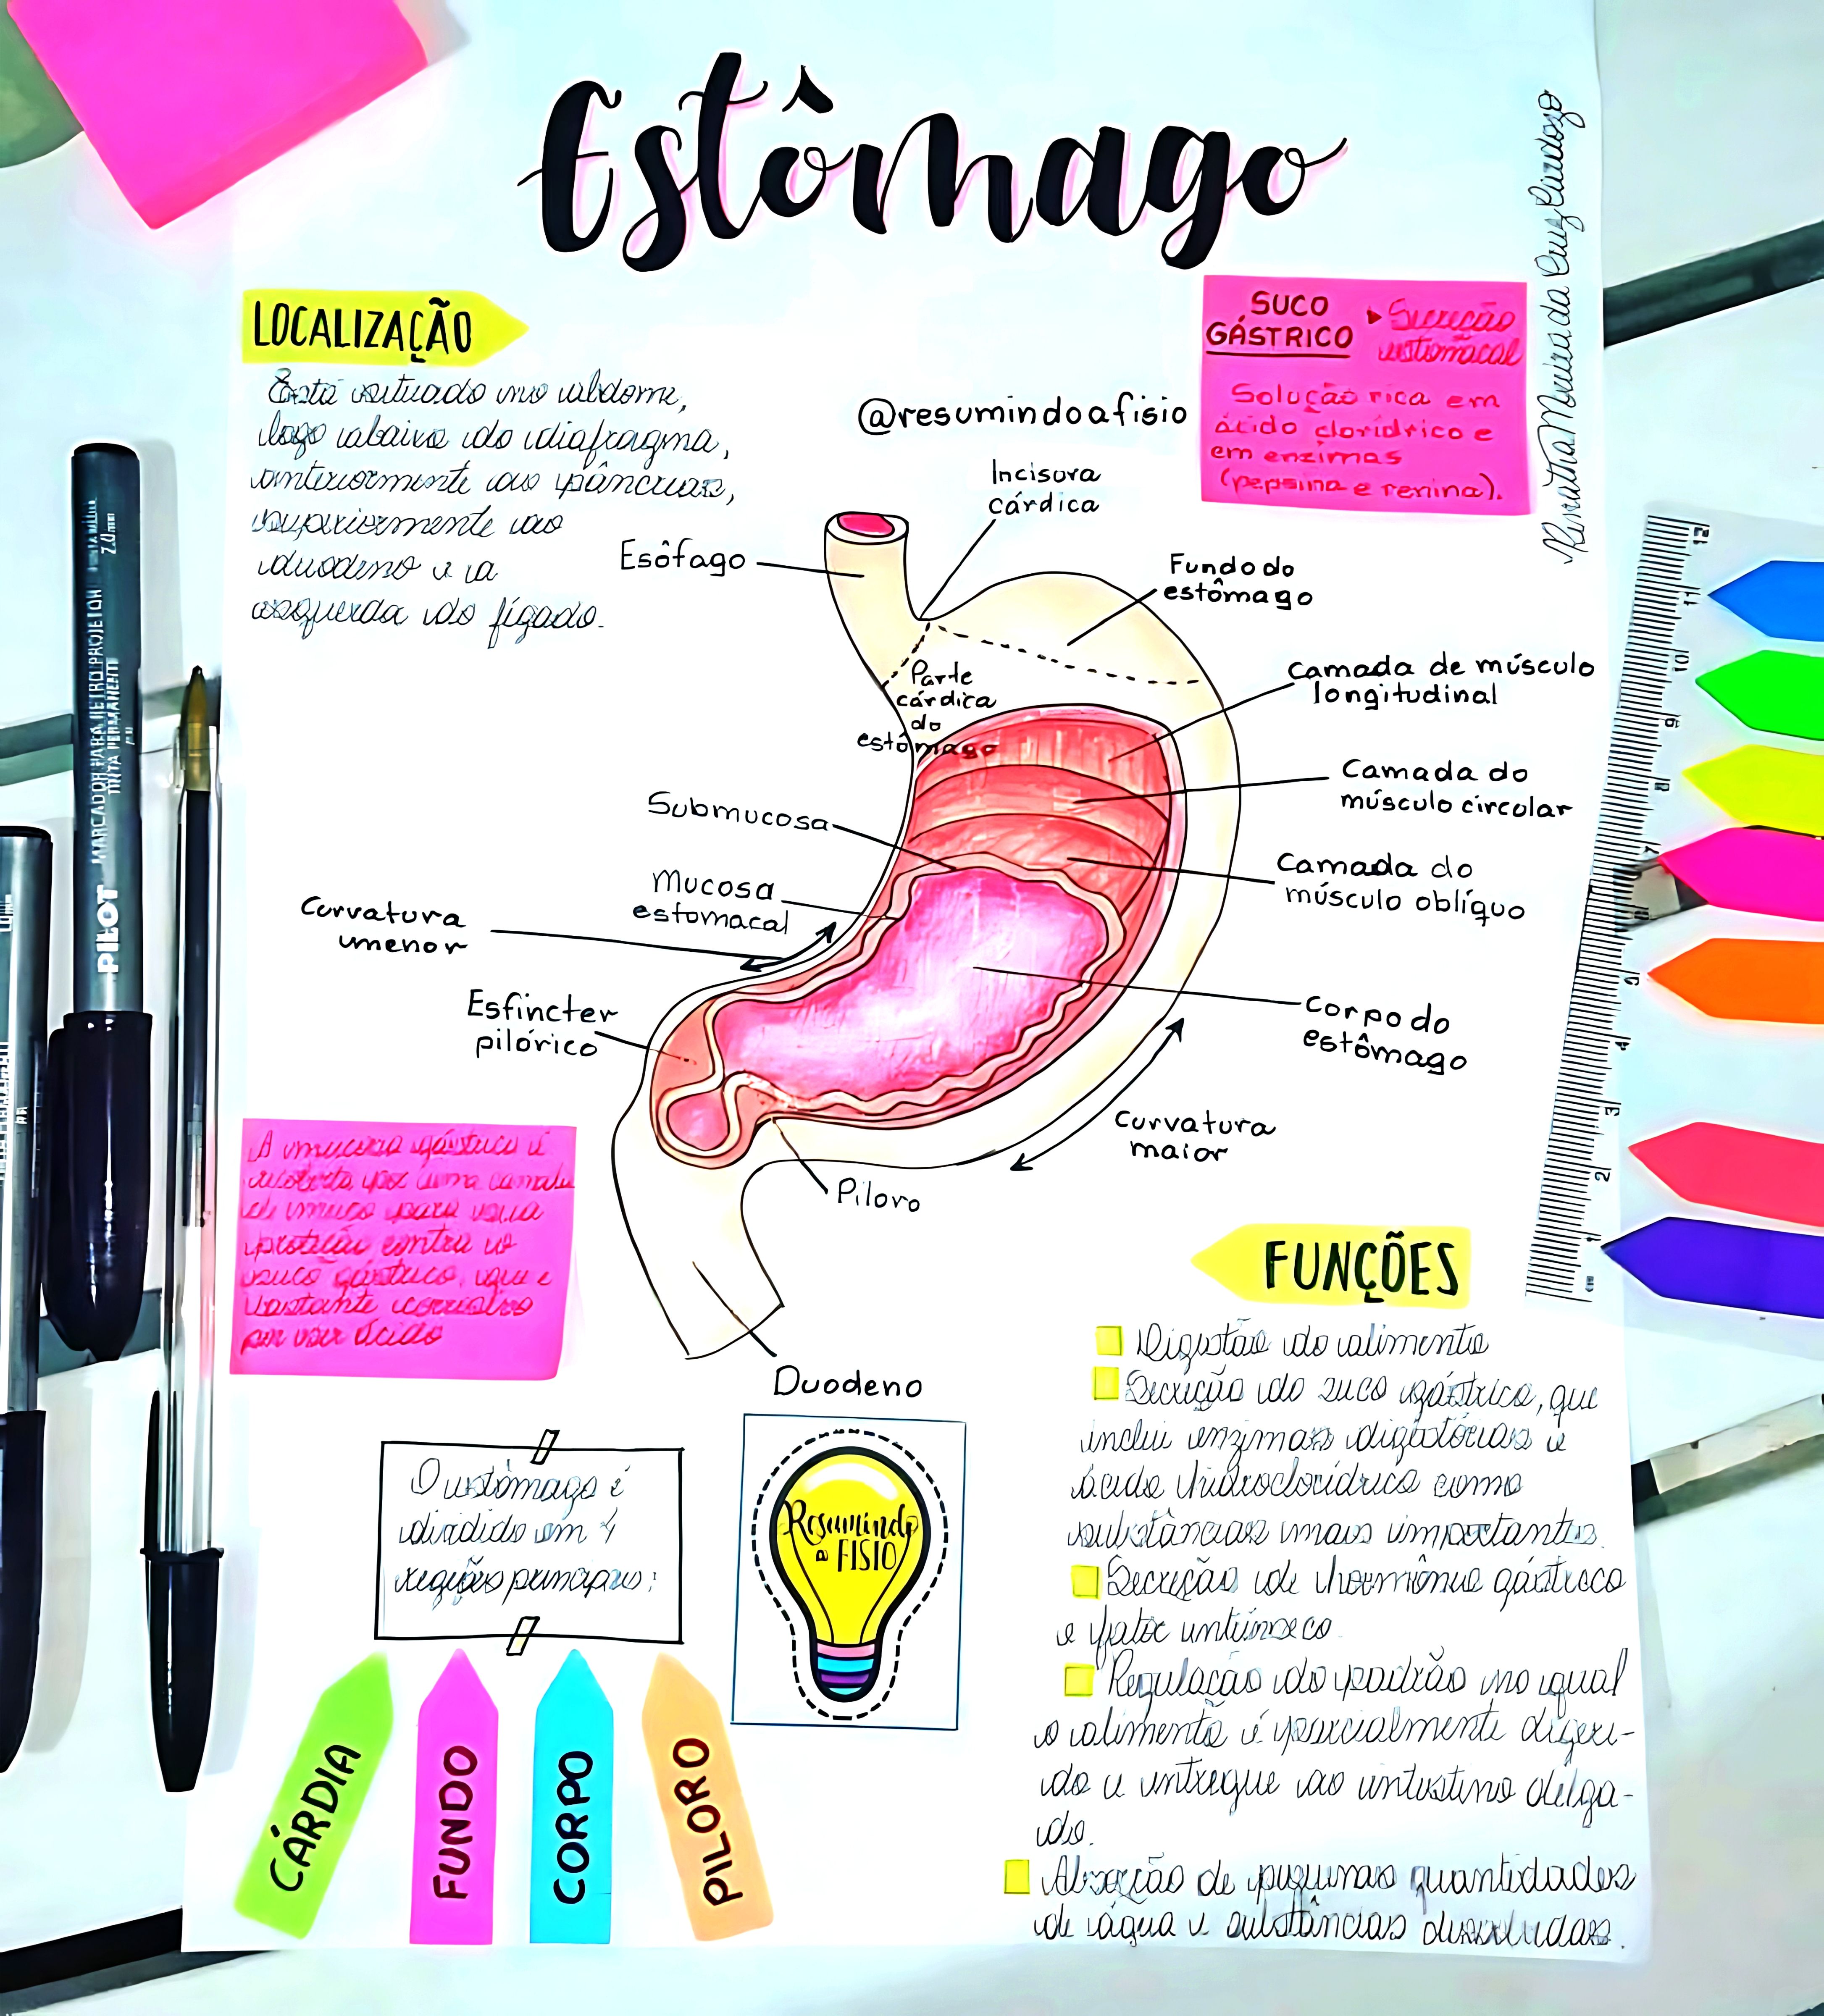 Estômago
Renatha Moreira da Cruz
LOCALIZAÇÃO
Está situado no abdome,
logo abaixo do diafragma,
anteriormente ao pâncreas,
superiormente ao
duodeno e a
esquerda do fígado.
SUCO
GÁSTRICO
▸ Secreção
estomacal
Solução rica em
ácido clorídrico e
em enzimas
(pepsina e renina).
@resumindoafisio
Incisura
cárdica
Esôfago
Fundo do
estômago
Parte
cárdica
do
estômago
Camada de músculo
longitudinal
Camada do
músculo circular
Submucosa
Camada do
músculo oblíquo
Mucosa
estomacal
Curvatura
menor
Esfíncter
pilórico
Corpo do
estômago
Curvatura
maior
Piloro
Duodeno
A mucosa gástrica é
recoberta por uma camada
de muco para sua
proteção contra o
suco gástrico, que é
bastante corrosivo
por ser ácido
O estômago é
dividido em 4
regiões principais:
CÁRDIA
FUNDO
CORPO
PILORO
Resumindo
a FISIO
FUNÇÕES
Digestão do alimento
Secreção do suco gástrico, que
inclui enzimas digestórias e
ácido hidroclorídrico como
substâncias mais importantes.
Secreção de hormônio gástrico
e fator intrínseco
Regulação do padrão no qual
o alimento é parcialmente digeri-
do e entregue ao intestino delga-
do.
Absorção de pequenas quantidades
de água e substâncias dissolvidas.
PILOT
MARCADOR PARA RETROPROJETOR
TINTA PERMANENTE
2.0mm
12
11
10
9
8
7
6
5
4
3
2
1